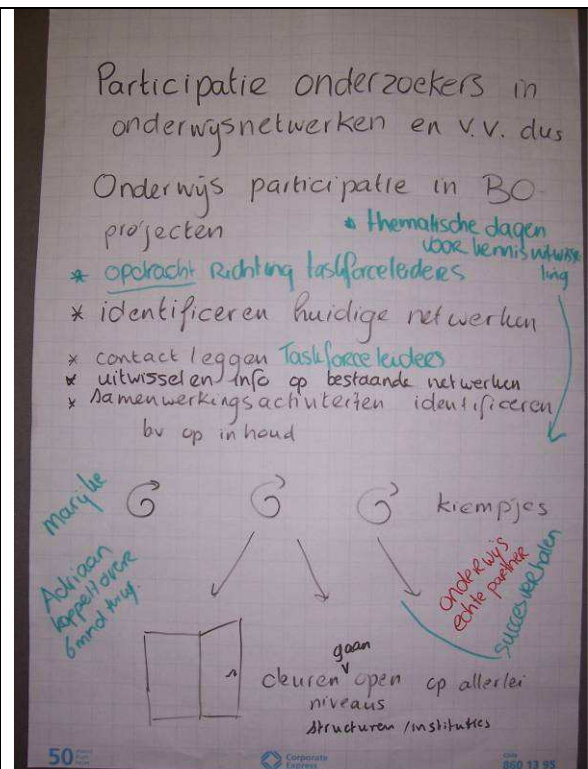 Participatie onderzoekers in
onderwijsnetwerken en v.v. dus
Onderwijs participatie in BO-
projecten
* thematische dagen
voor kennisuitwisse
ling
* opdracht Richting taskforceleiders
* identificeren huidige netwerken
* contact leggen Taskforceleiders
* uitwisselen info op bestaande netwerken
* samenwerkingsactiviteiten identificeren
bv op inhoud
marijke
kiempjes
Adriaan
koppelt over
6 mnd terug.
onderwijs
echte partner
succesverhalen
gaan
deuren open op allerlei
niveaus
structuren / instituties
50
Corporate
Express
860 13 95